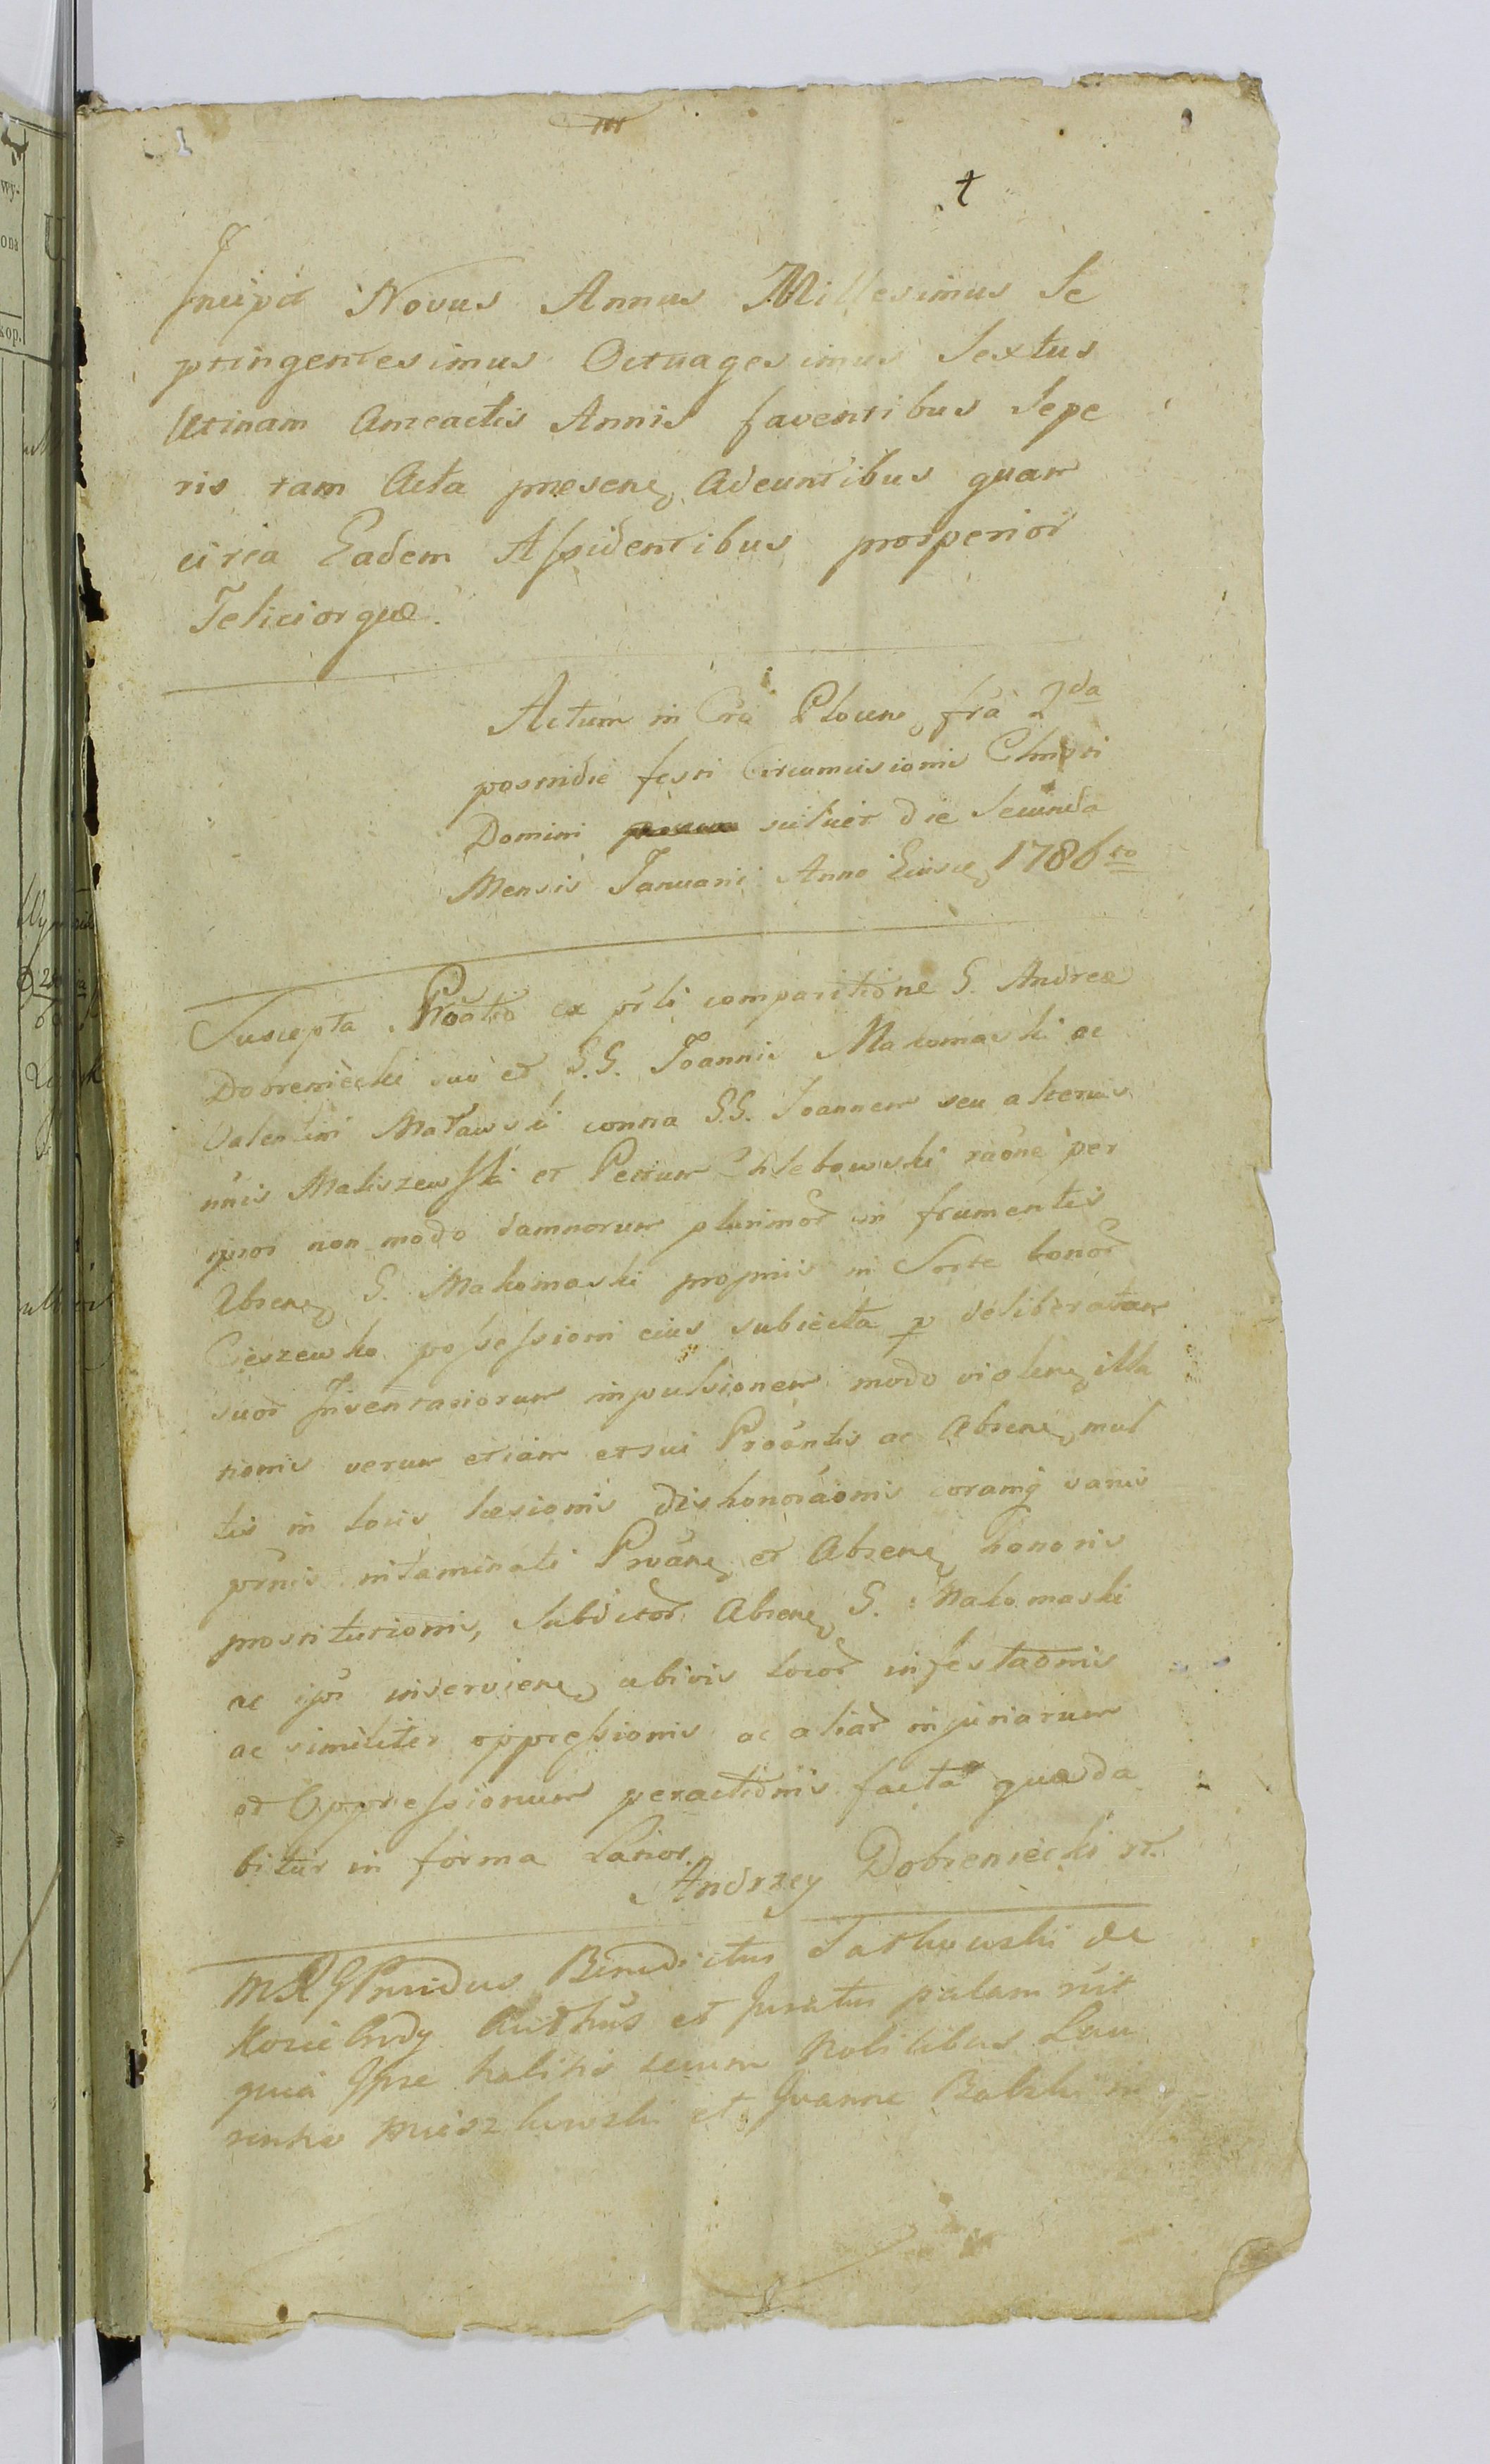 Incipit Novus Annus Millesimus Se
ptingentesimus Octuagesimus Sextus
Utinam Anteactis Annis faventibus Sepe
ris tam Acta presen. Adeuntibus quam
circa Eadem Assidentibus prosperior
Feliciorque.
Actum in Cra Plocen. fra 2da
postridie festi Circumcisionis Christi
Domini scilicet die Secunda
Mensis Januarii Anno Eiusd. 1786to
Suscepta Proatio ex prli comparitione G. Andreæ
Dobrenięcki suo et G.G. Joannis Makomaski ac
Valentini contra GG. Joannem seu alterius
nnis Maliszewski et Petrum Chlebowski raone per
ipsos non modo damnorum plurimor in frumentis
Absen. G. Makomaski propriis in Sorte bonor
Cieszewko possessioni eius subiecta p deliberatam
suor Inventariorum impulsionem modo violen. illa
tionis verum etiam et sui Proantis ac Absen. mul
tis in locis læsionis dishonoraonis coramq variis
prnis intaminati Proan. et Absen. honoris
prostitutionis, Subditor Absen. G. Makomaski
ac ipsi inservien. ubivis locor infestaonis
ac similiter oppressionis ac aliar injuriarum
et Oppressionum peractionis facta quæ da
bitur in forma Latior.
Andrzey Dobrenięcki
Providus Benedictus Sarkowski de
et Juratus palam
quia Ipse secum Nobilibus Lau
et Joanne in